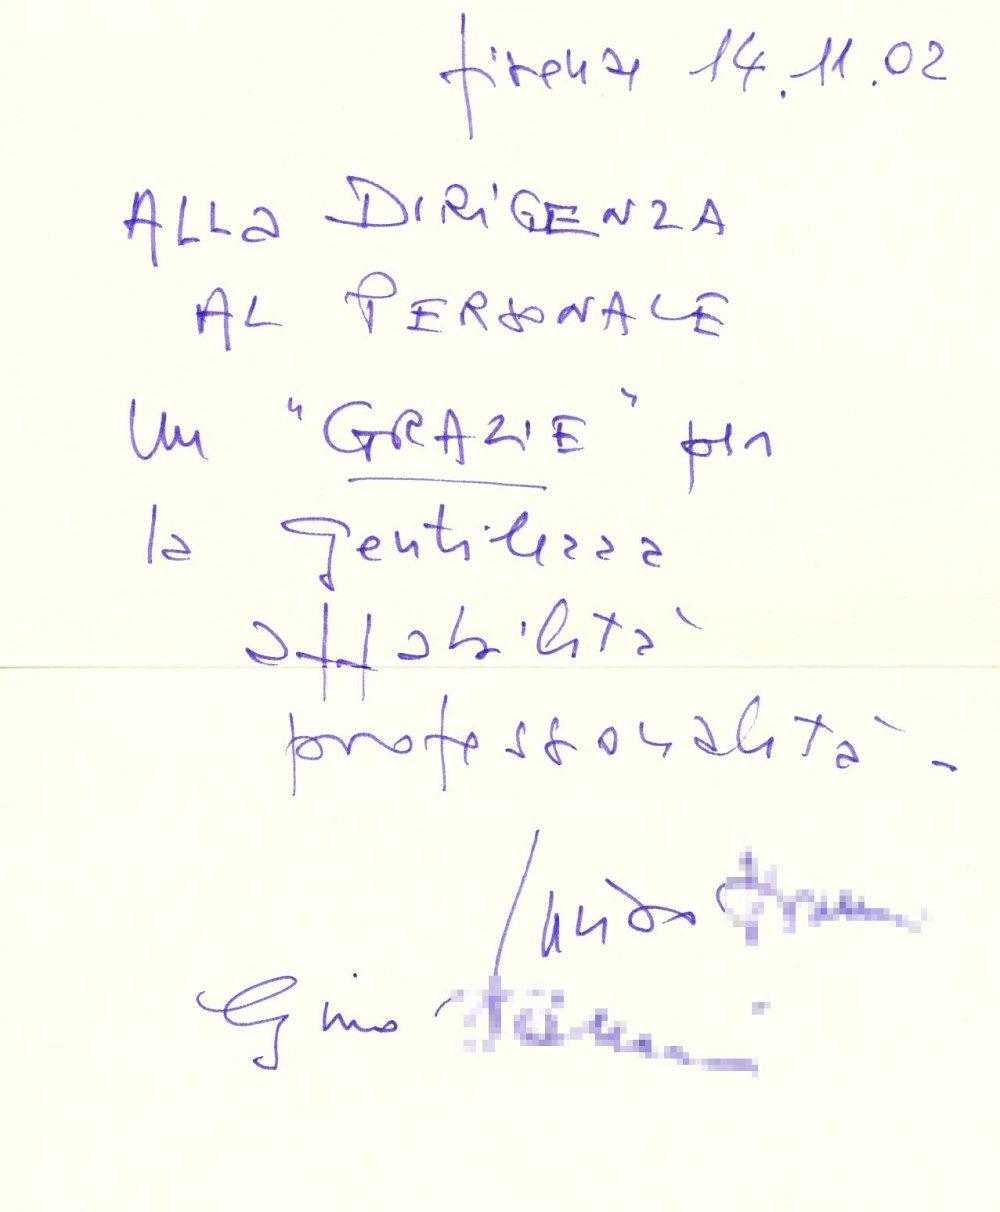 firenze 14.11.02
ALLA DIRIGENZA
AL PERSONALE
Un "GRAZIE" per
la gentilezza
affabilità
professionalità -
Gino